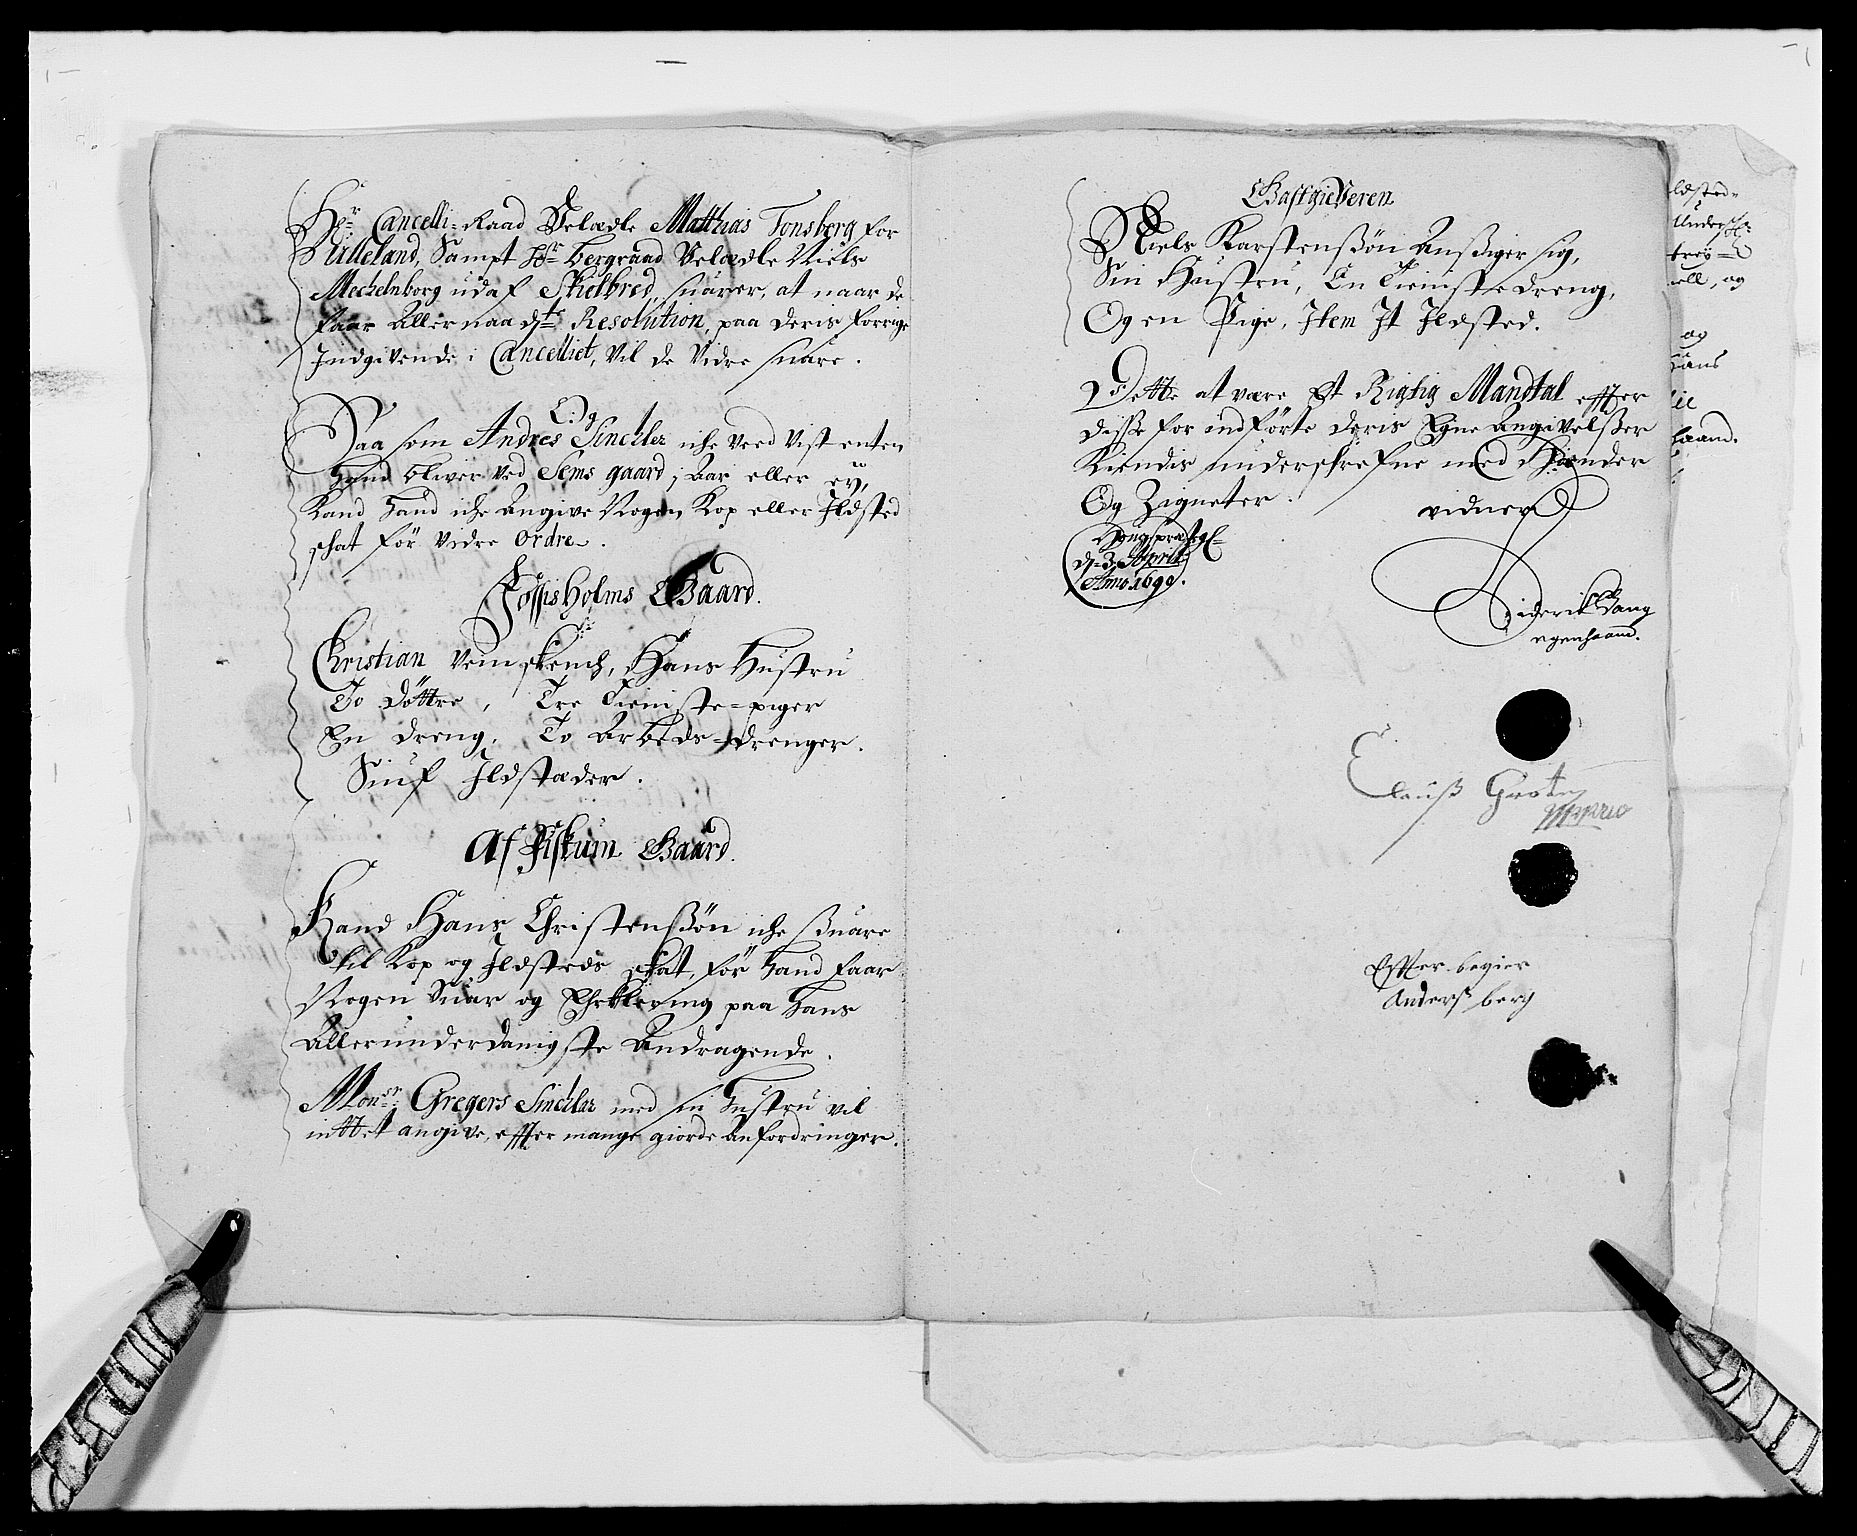 Hr Cancelli-Raad Velædle Matthias Tonsberg for
Ulleland, Sampt Hr bergraad Velædle Niels
Mechelnborg udaf Skielbred, suarer, at naar de
faar Allernaadste Resolution, paa deris forrige
Indgivende i Cancelliet, Vil de Vidre suare.
Og
Saa som Andres Sinchler iche veed vist enten
Hand bliver ved Sems gaard i Aar eller eÿ,
Kand Hand iche Angive Nogen Kop eller Ildsted
schat för Vidre Ordre.
Fossisholms Gaard.
Christian Vemschench, Hans Hustru
To Döttre, Tre Tieniste-piger
En dreng, To Arbeds-drenger.
Siuf Ildstæder.
Af Fiskum Gaard.
Kand Hans Christenßön iche ßuare
til Kop og Ildsteds skat, för Hand faar
Nogen Suar og Ehrklering paa Hans
Allerunderdanigste Andragende.
Monsr: Gregers Sinchler med sin Hustru vil
inttet angive, effter mange giorde Anfordringer.
Gastgieveren
Niels Karstensßön Anßiger sig,
Sin Hustru, En Tieniste dreng,
Og en Pige, Item It Ildsted.
Dette at være Et Rigtig Mandtal effter
disse for indförte deris Egne Angivelßer
Kiendis underschrefne med Hænder
Og Zigneter.
vidner
d. 3 Aprilis
Anno 1690.
Diderik Bang
egenhaand.
Clauß
Effter begier
Anderß berg
ldsted
Under
ell, og
og
Hans
haand.